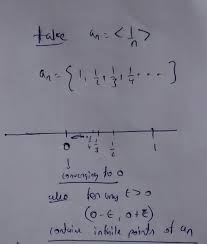 take aₙ = < 1/n >
aₙ = { 1, 1/2, 1/3, 1/4, .... }
0 1/4 1/3 1/2 1
converging to 0
also for any ε > 0
(0-ε, 0+ε)
contains infinite points of aₙ